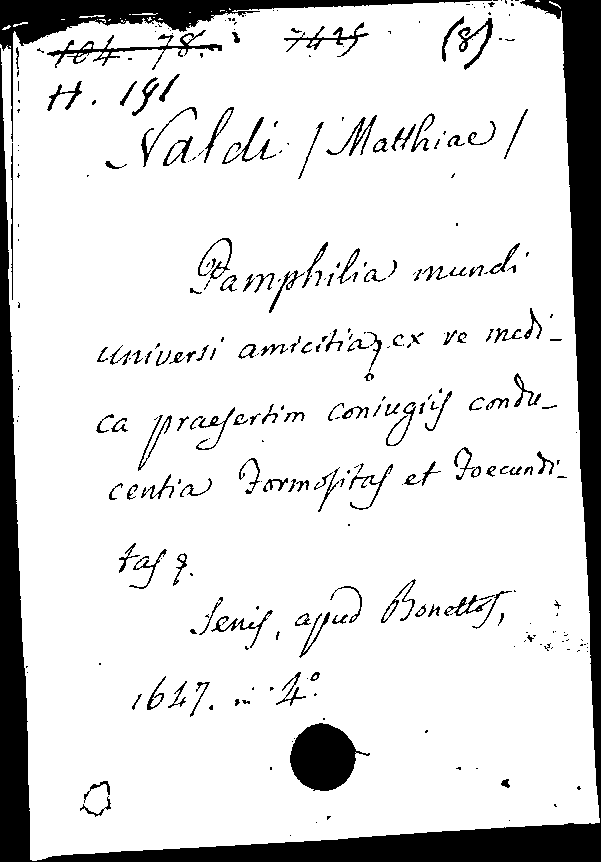 104. 78. 7425 (8)
H. 191
Naldi / Matthiae /
Pamphilia mundi
universi amicitia, ex re medi-
ca praesertim coniugiis condu-
centia Formositas et Foecundi-
tas
Senis, apud Bonettos,
1647. in 4°.